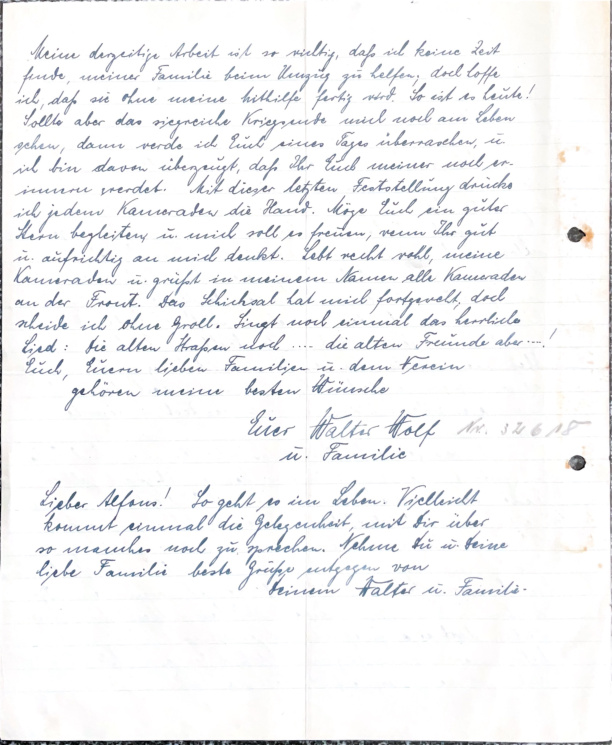 Meine derzeitige Arbeit ist so wichtig, daß ich keine Zeit
finde, meiner Familie beim Umzug zu helfen, doch hoffe
ich, daß sie ohne meine Mithilfe fertig wird. So ist es heute!
Sollte aber das siegreiche Kriegsende mich noch am Leben
sehen, dann werde ich Euch eines Tages überraschen, u.
ich bin davon überzeugt, daß Ihr Euch meiner noch er-
innern werdet. Mit dieser letzten Feststellung drücke
ich jedem Kameraden die Hand. Möge Euch ein guter
Stern begleiten, u. mich soll es freuen, wenn Ihr gut
u. aufrichtig an mich denkt. Lebt recht wohl, meine
Kameraden u. grüßt in meinem Namen alle Kameraden
an der Front. Das Schicksal hat mich fortgeweht, doch
scheide ich ohne Groll. Singt noch einmal das herrliche
Lied: Die alten Straßen noch .... die alten Freunde aber ...!
Euch, Euern lieben Familien u. dem Verein
gehören meine besten Wünsche
Euer Walter Wolf Nr. 32618
u. Familie
Lieber Alfons! So geht es im Leben. Vielleicht
kommt einmal die Gelegenheit, mit Dir über
so manches noch zu sprechen. Nehme Du u. Deine
liebe Familie beste Grüße entgegen von
Deinem Walter u. Familie.